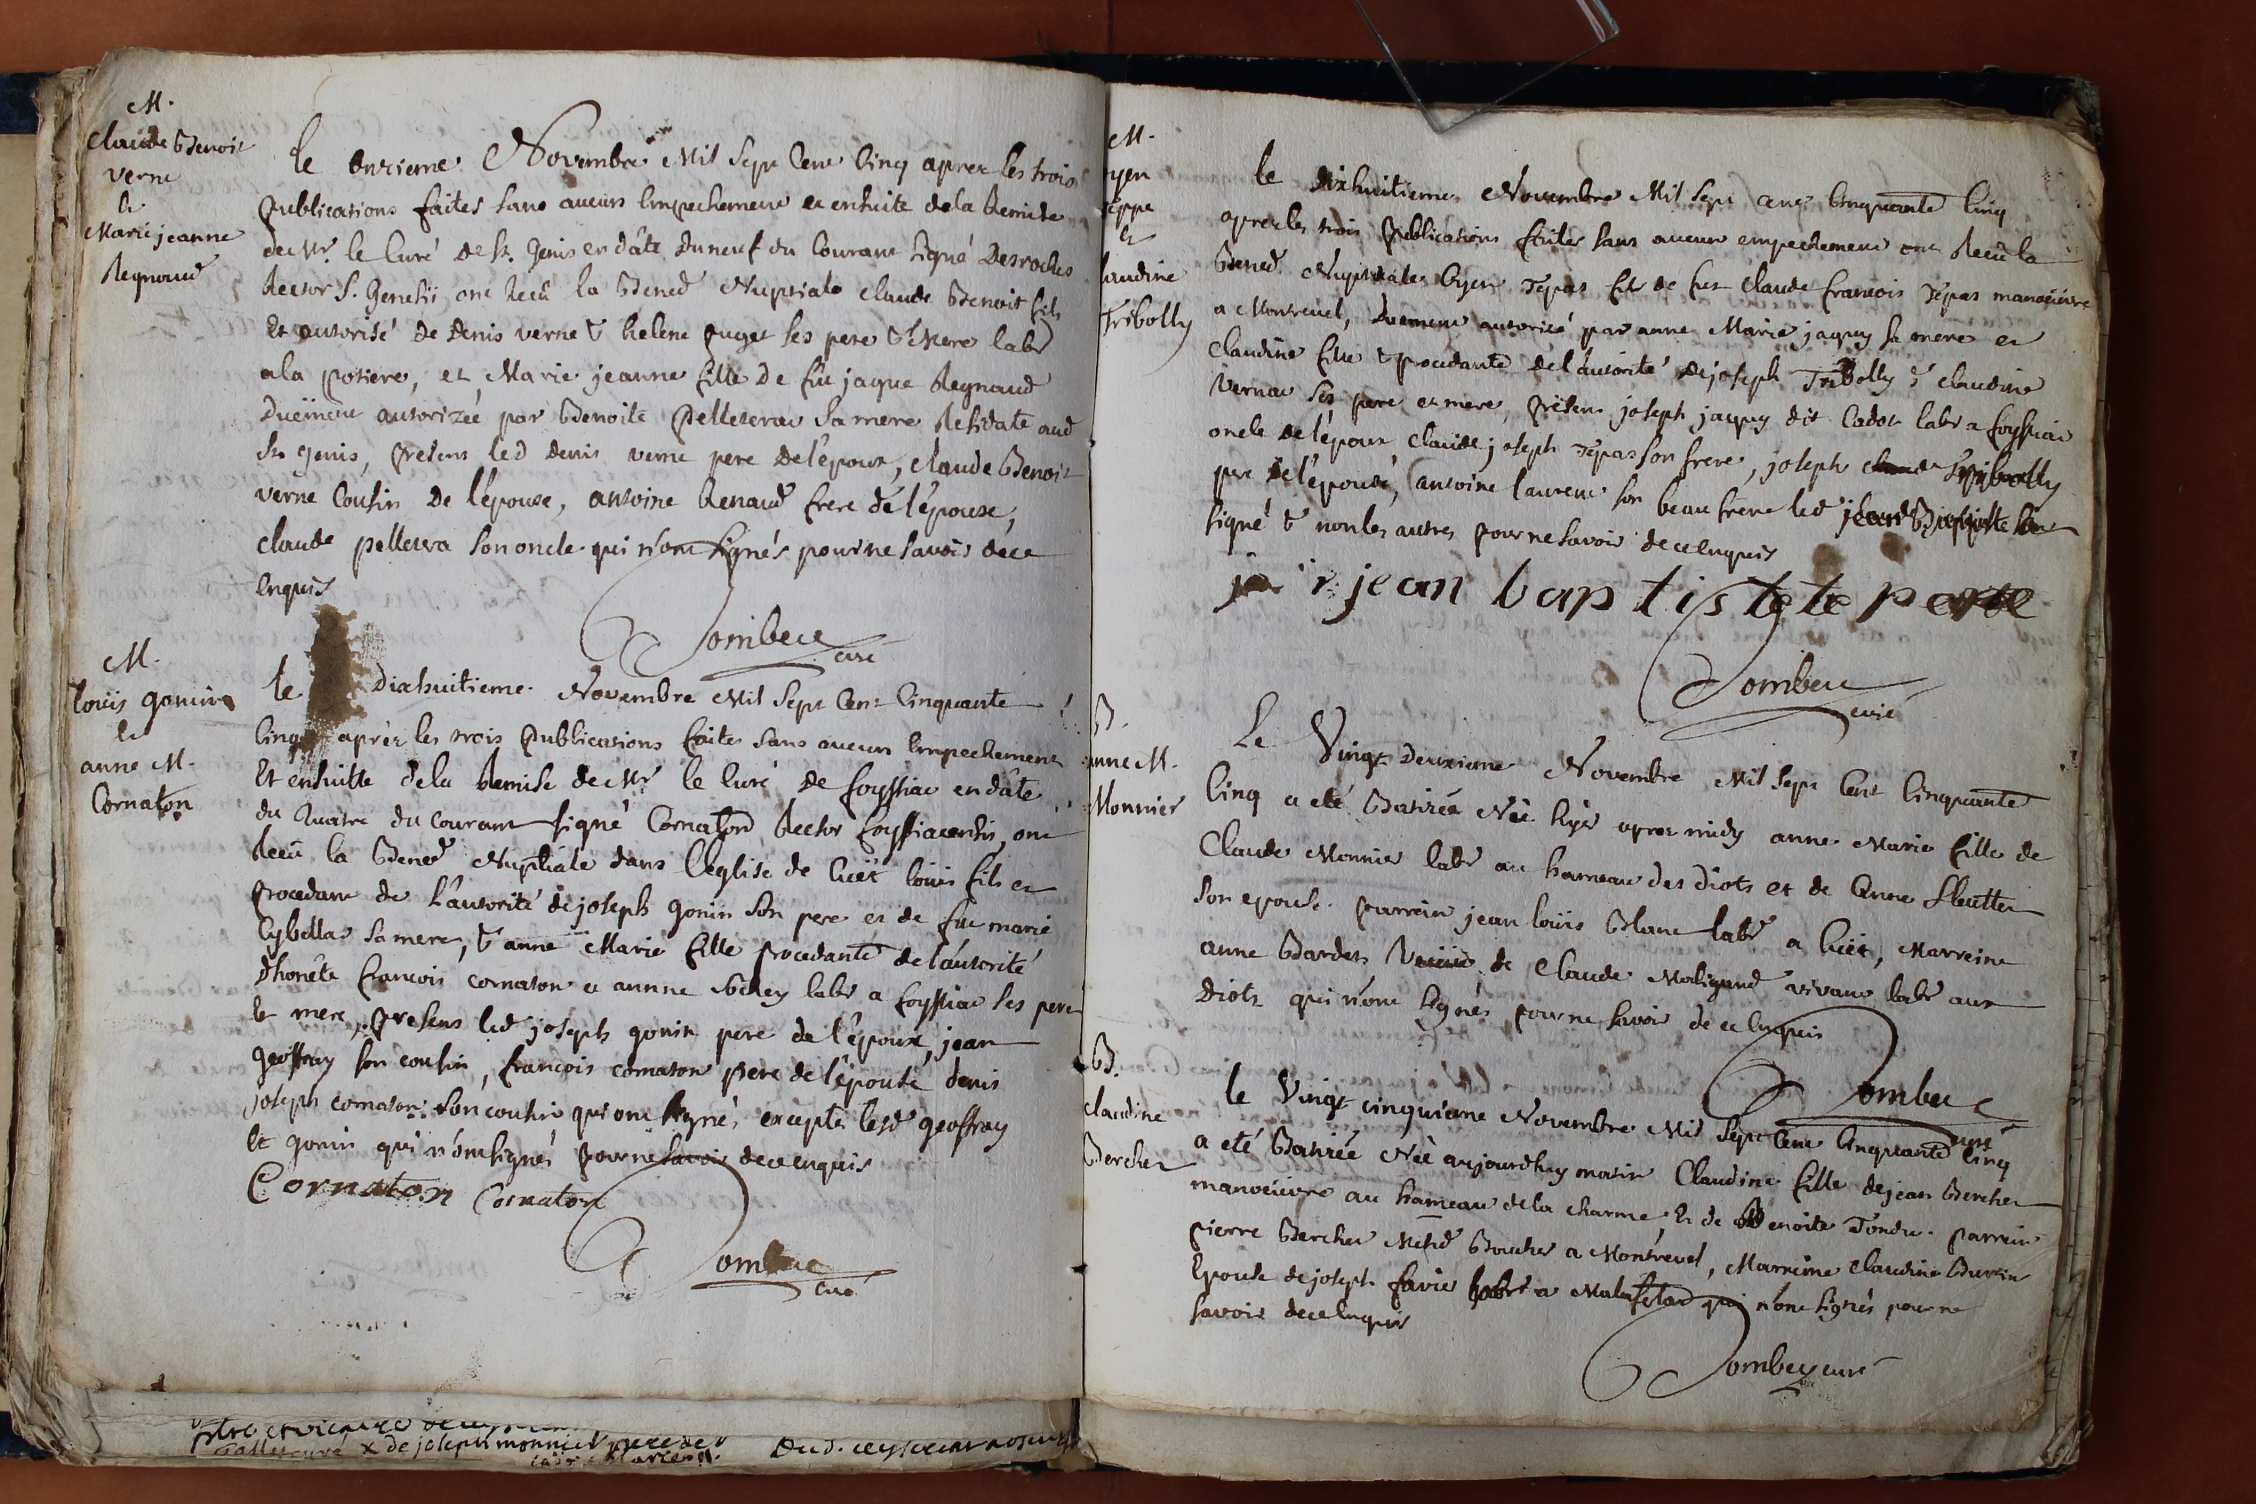 M.
Claude Benoit
verne
&
Marie jeanne
Regnaud
le onzieme Novembre Mil Sept Cent Cinq apres les trois
publications faites sans aucun Empechement et ensuite de la Remise
de Mr. le Curé de St. Genis en dâte du neuf du Courant signé Desroches
Rector S. Genesii ont Recû la Bened Nuptiale Claude Benoit fils
Et autorisé de Denis verne & helene puget ses pere & Mere labr
a la potiere, et Marie jeanne fille de fûe jaque Regnaud
Duëment autorizée par Benoite Pelletera sa mere Residate aud
St genis, présens led Denis verne pere de l'époux, Claude Benoit
verne Cousin De l'épouse, antoine Renaud frere de l'épouse,
Claude pelletera son oncle qui n'ont signés pour ne savoir de ce
enquis
Dombeu
curé
M.
louïs gonin
&
anne M.
Cornaton
le Dixhuitieme Novembre Mil Sept Cent Cinquante
Cinq après les trois Publications faites sans aucun Empechement
Et ensuitte de la Remise de Mr. le Curé de foyssia en dâte
du Quatre du Courant signé Cornaton Rector foyssiacensis ont
Recû la Bened Nuptiale dans l'Eglise de Cuët louis fils et
procedant de L'autorité de joseph gonin son pere et de fûe marie
sa mere, & anne Marie fille procedante de l'autorité
d'honête francois cornaton et annne labr a foyssia ses pere
& mere, Présens led joseph gonin pere de l'époux, jean
geoffray son cousin, françois cornaton pere de l'épouse denis
joseph cornaton son cousin qui ont signé, exceptés lesd geoffray
Et gonin qui n'ont signés pour ne savoir de ce enquis
Cornaton Cornaton
Dombeu
curé
M.
yen
eppe
&
laudine
Tribolly
le dixhuitieme Novembre Mil Sept Cent Cinquante Cinq
apres les trois Publications faites sans aucun empechement ont Recû la
Bened Nuptiale Oyen Tépas fils de fut Claude francois Tépas manoeüvre
a Montrevel, Duement autorisé par anne Marie jaquy sa mere et
Claudine fille & procedante de l'autorité de joseph Tribolly & Claudine
Vernat ses pere et mere, présens joseph jaquy dit Cadot labr a foyssia
oncle de l'époux Claude joseph Tépas son frere, joseph Tribolly
pere de l'épouse, antoine laurent son beau frere led jean Baptiste
signé & non les autres pour ne savoir de ce enquis
jean baptiste
Dombeu
curé
B.
anne M.
Monnier
Le Vingt deuxieme Novembre Mil Sept Cent Cinquante
Cinq a eté Batizée Née hyer apres midy anne Marie fille de
Claude Monnier labr au hameau des Diots et de
son epouse. parrein jean louïs Blanc labr a Cuët, Marreine
anne Bardet Veüve de Claude Maligand vivant labr aux
Diots qui n'ont signés pour ne savoir de ce Enquis
Dombeu
curé
B.
Claudine
Bercher
le Vingt cinquieme Novembre Mil Sept Cent Cinquante Cinq
a eté Batizée Née aujourdhuy matin Claudine fille de jean Bercher
manoeüvre au hameau de la charme, Et de Benoite Tondu. parrein
pierre Bercher Mchd Boucher a Montrevel, Marreine Claudine Buvin
Epouse de joseph favie labr a qui n'ont signés pour ne
savoir de ce Enquis
Dombey curé